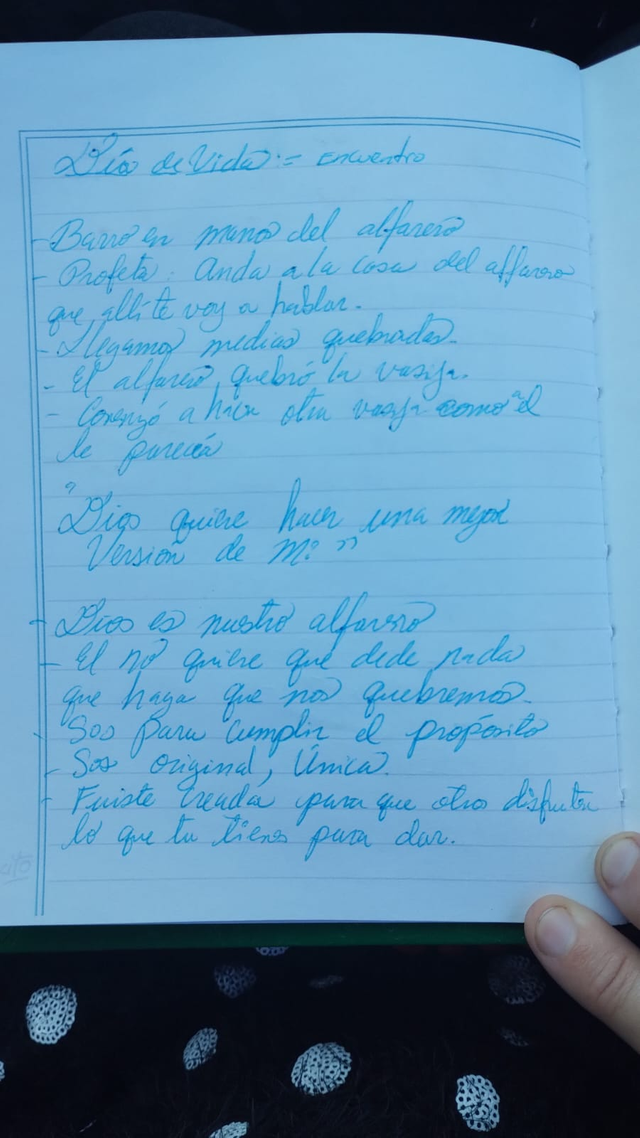 Días de Vida := Encuentro
- Barro en manos del alfarero
- Profeta: Anda a la casa del alfarero
que allí te voy a hablar.
- Llegamos medios quebrados.
- El alfarero quebró la vasija.
- Comenzó a hacer otra vasija como "el
le parecía
"
Dios quiere hacer una mejor
Version de Mi"
- Dios es nuestro alfarero
- El no quiere que dede nada
que haga que nos quebremos.
- Sos para cumplir el propósito
- Sos original, Única.
- Fuiste Creada para que otros disfruten
lo que tu tienes para dar.